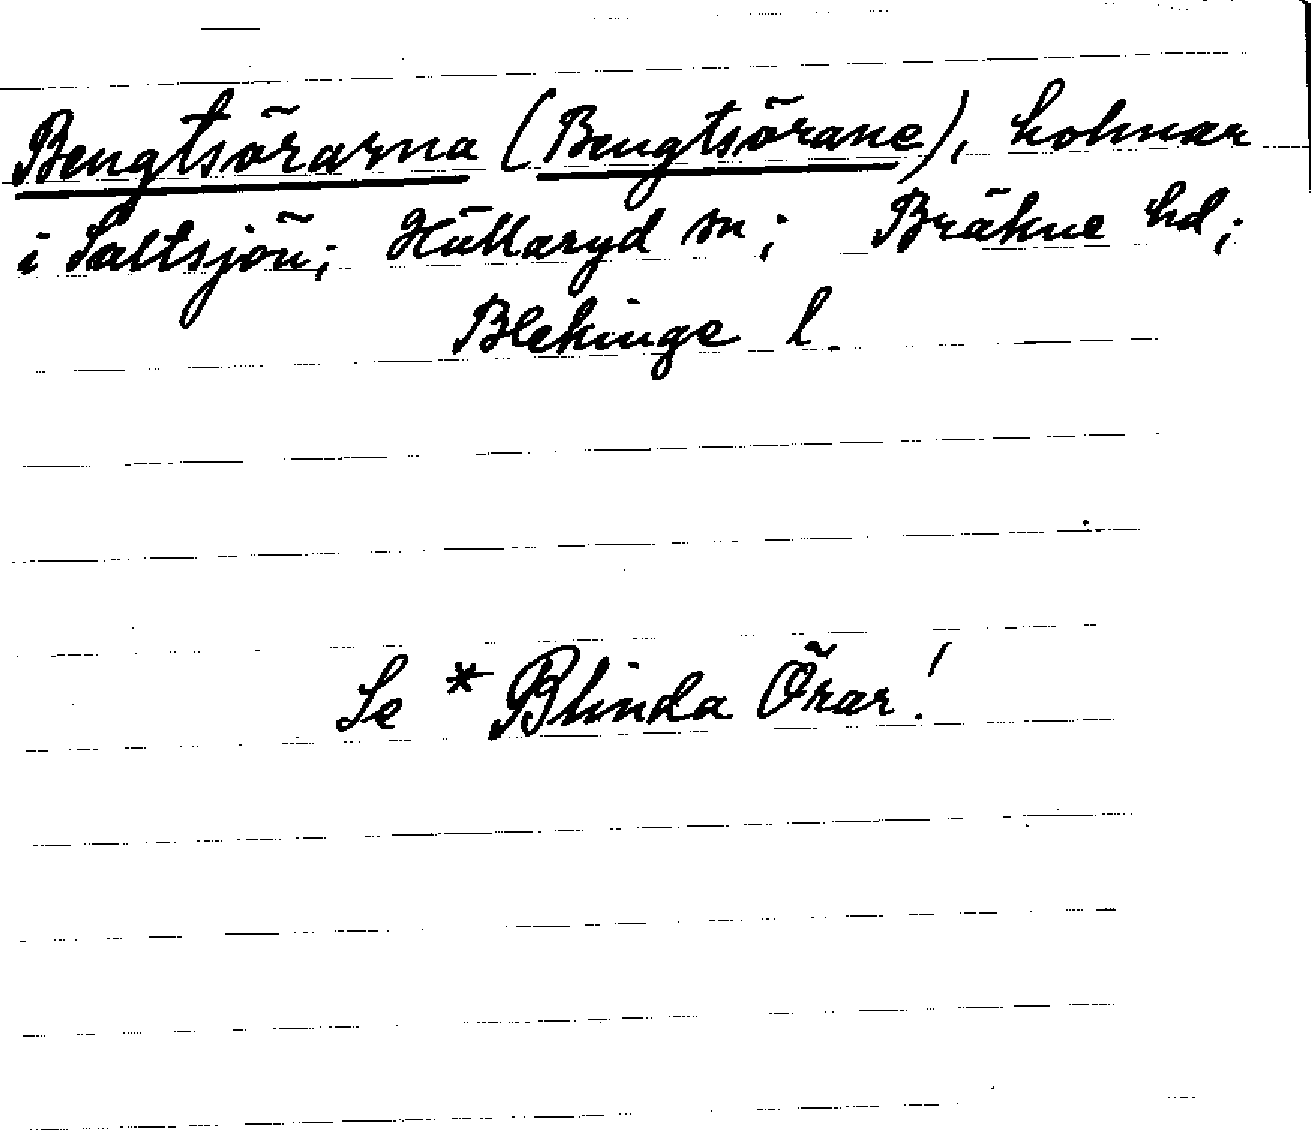 Bengtsörarna (Bengtsörane), holmar
i Saltsjön; Hällaryd sn; Bräkne hd;
Blekinge l.
Se * Blinda Örar!